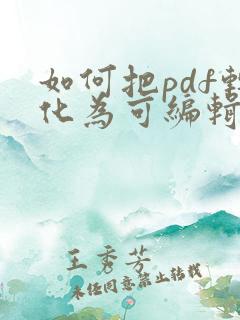 如何把pdf转
化为可编辑
王秀芳
未经同意禁止转载